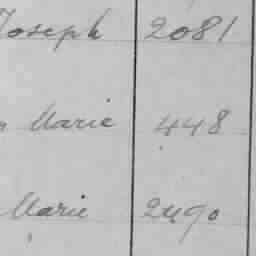 Joseph 2081
Marie 448
Marie 2490